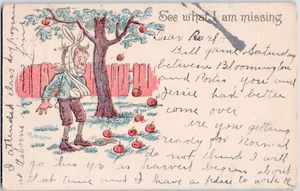 See what I am missing
Dear Pearl
Ball game Saturday
between Bloomington
and Normal you and
Jessie had better
come over
are you getting
ready for Normal
do not think I will
go this yr as harvest begins about
that time and I have a place to work
I attended class